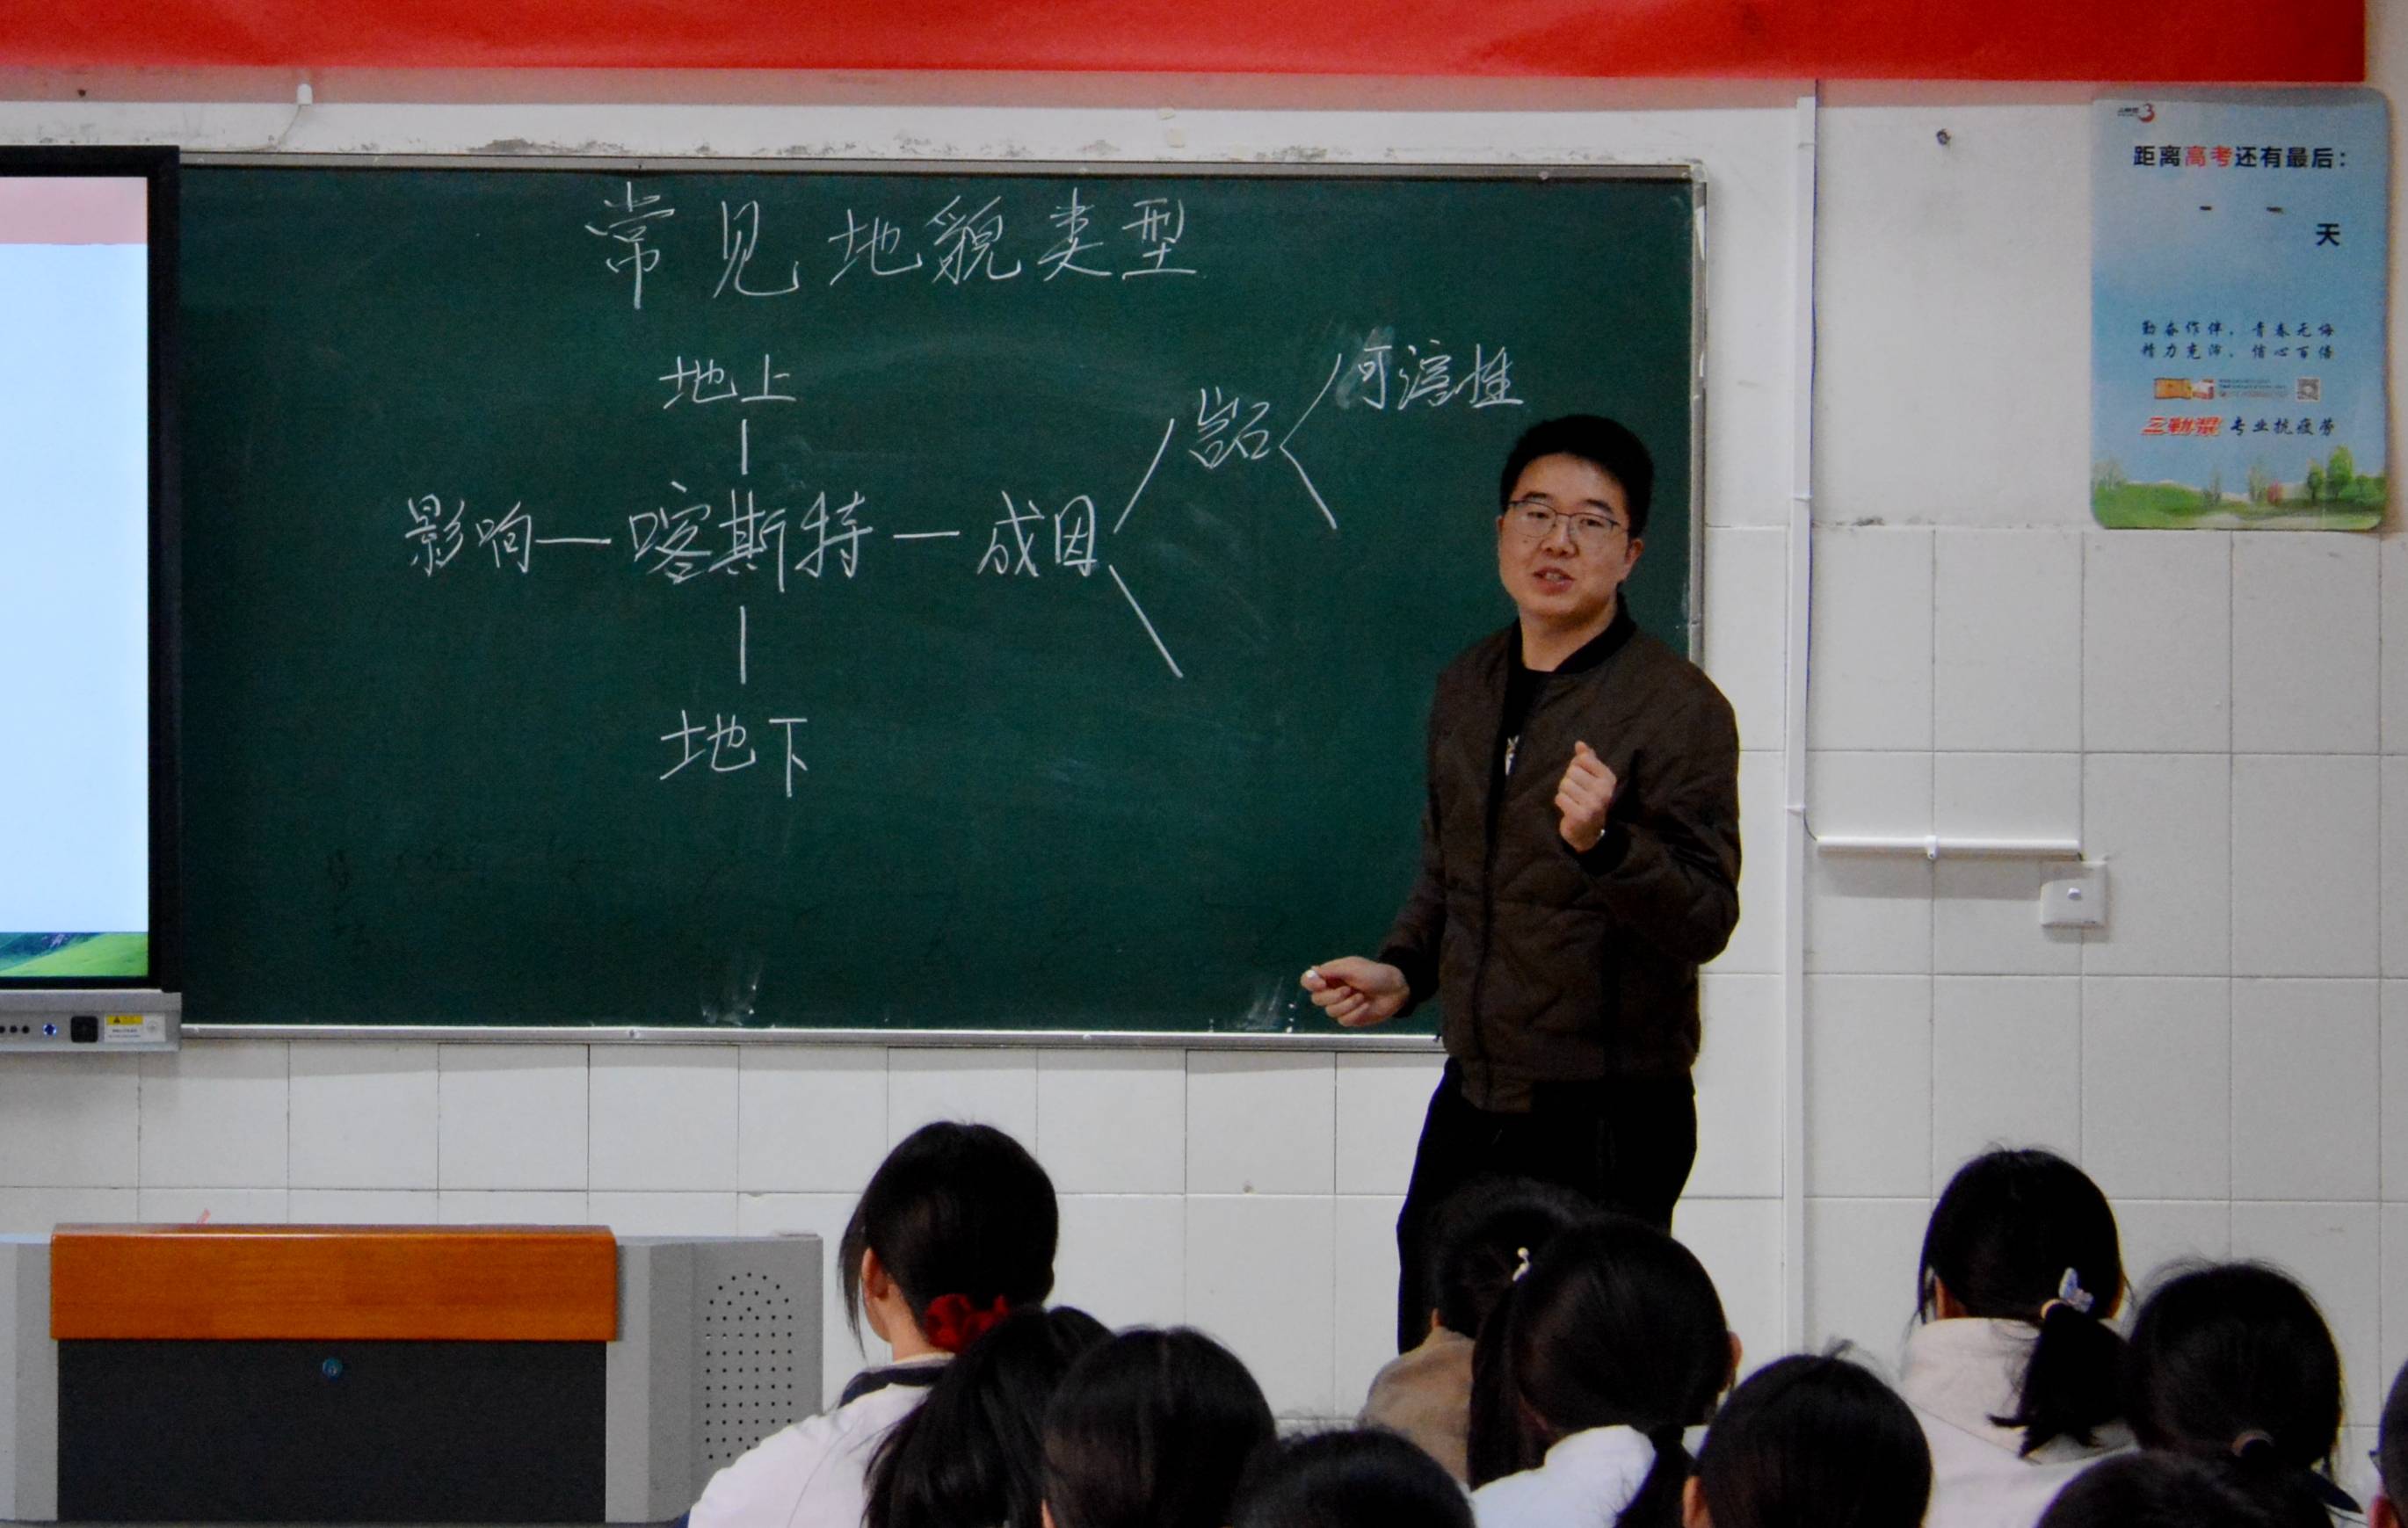 常见地貌类型
地上
影响—喀斯特—成因
岩石
可溶性
地下
距离高考还有最后：
天
勤奋作伴，青春无悔
精力充沛，信心百倍
三勒浆 专业抗疲劳